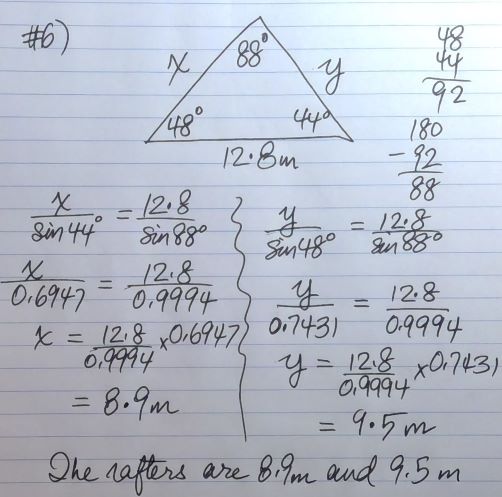 #6)
88°
x
y
48°
44°
12.8m
48
44
92
180
- 92
88
x/sin44° = 12.8/sin88°
x/0.6947 = 12.8/0.9994
x = 12.8/0.9994 × 0.6947
= 8.9m
y/sin48° = 12.8/sin88°
y/0.7431 = 12.8/0.9994
y = 12.8/0.9994 × 0.7431
= 9.5m
The rafters are 8.9m and 9.5m